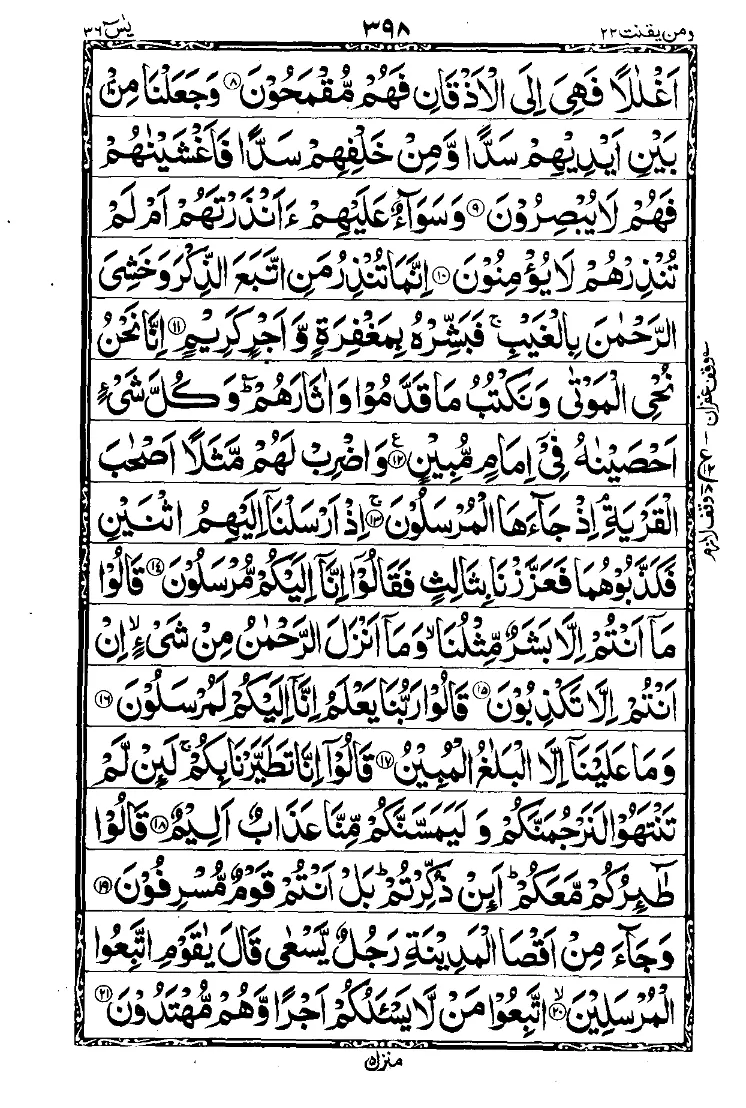 ومن يقنت ٢٢
٣٩٨
يٰسٓ ٣٦
اَغْلٰلًا فَهِىَ اِلَى الْاَذْقَانِ فَهُمْ مُّقْمَحُوْنَ ۸ وَجَعَلْنَا مِنْۢ
بَيْنِ اَيْدِيْهِمْ سَدًّا وَّمِنْ خَلْفِهِمْ سَدًّا فَاَغْشَيْنٰهُمْ
فَهُمْ لَا يُبْصِرُوْنَ ۹ وَسَوَآءٌ عَلَيْهِمْ ءَاَنْذَرْتَهُمْ اَمْ لَمْ
تُنْذِرْهُمْ لَا يُؤْمِنُوْنَ ۱۰ اِنَّمَا تُنْذِرُ مَنِ اتَّبَعَ الذِّكْرَ وَخَشِىَ
الرَّحْمٰنَ بِالْغَيْبِ ۚ فَبَشِّرْهُ بِمَغْفِرَةٍ وَّاَجْرٍ كَرِيْمٍ ۱۱ اِنَّا نَحْنُ
نُحْىِ الْمَوْتٰى وَنَكْتُبُ مَا قَدَّمُوْا وَاٰثَارَهُمْ ؕ وَكُلَّ شَىْءٍ
اَحْصَيْنٰهُ فِىْۤ اِمَامٍ مُّبِيْنٍ ۱۲ ع وَاضْرِبْ لَهُمْ مَّثَلًا اَصْحٰبَ
الْقَرْيَةِ ۘ اِذْ جَآءَهَا الْمُرْسَلُوْنَ ۚ ۱۳ اِذْ اَرْسَلْنَاۤ اِلَيْهِمُ اثْنَيْنِ
فَكَذَّبُوْهُمَا فَعَزَّزْنَا بِثَالِثٍ فَقَالُوْۤا اِنَّاۤ اِلَيْكُمْ مُّرْسَلُوْنَ ۱٤ قَالُوْا
مَاۤ اَنْتُمْ اِلَّا بَشَرٌ مِّثْلُنَا ۙ وَمَاۤ اَنْزَلَ الرَّحْمٰنُ مِنْ شَىْءٍ ۙ اِنْ
اَنْتُمْ اِلَّا تَكْذِبُوْنَ ۱۵ قَالُوْا رَبُّنَا يَعْلَمُ اِنَّاۤ اِلَيْكُمْ لَمُرْسَلُوْنَ ۱٦
وَمَا عَلَيْنَاۤ اِلَّا الْبَلٰغُ الْمُبِيْنُ ۱۷ قَالُوْۤا اِنَّا تَطَيَّرْنَا بِكُمْ ۚ لَئِنْ لَّمْ
تَنْتَهُوْا لَنَرْجُمَنَّكُمْ وَلَيَمَسَّنَّكُمْ مِّنَّا عَذَابٌ اَلِيْمٌ ۱۸ قَالُوْا
طَآئِرُكُمْ مَّعَكُمْ ؕ اَئِنْ ذُكِّرْتُمْ ؕ بَلْ اَنْتُمْ قَوْمٌ مُّسْرِفُوْنَ ۱۹
وَجَآءَ مِنْ اَقْصَا الْمَدِيْنَةِ رَجُلٌ يَّسْعٰى قَالَ يٰقَوْمِ اتَّبِعُوا
الْمُرْسَلِيْنَ ۙ ۲۰ اتَّبِعُوْا مَنْ لَّا يَسْـَٔلُكُمْ اَجْرًا وَّهُمْ مُّهْتَدُوْنَ ۲۱
وقف غفران
وقف لازم
منزل ۵